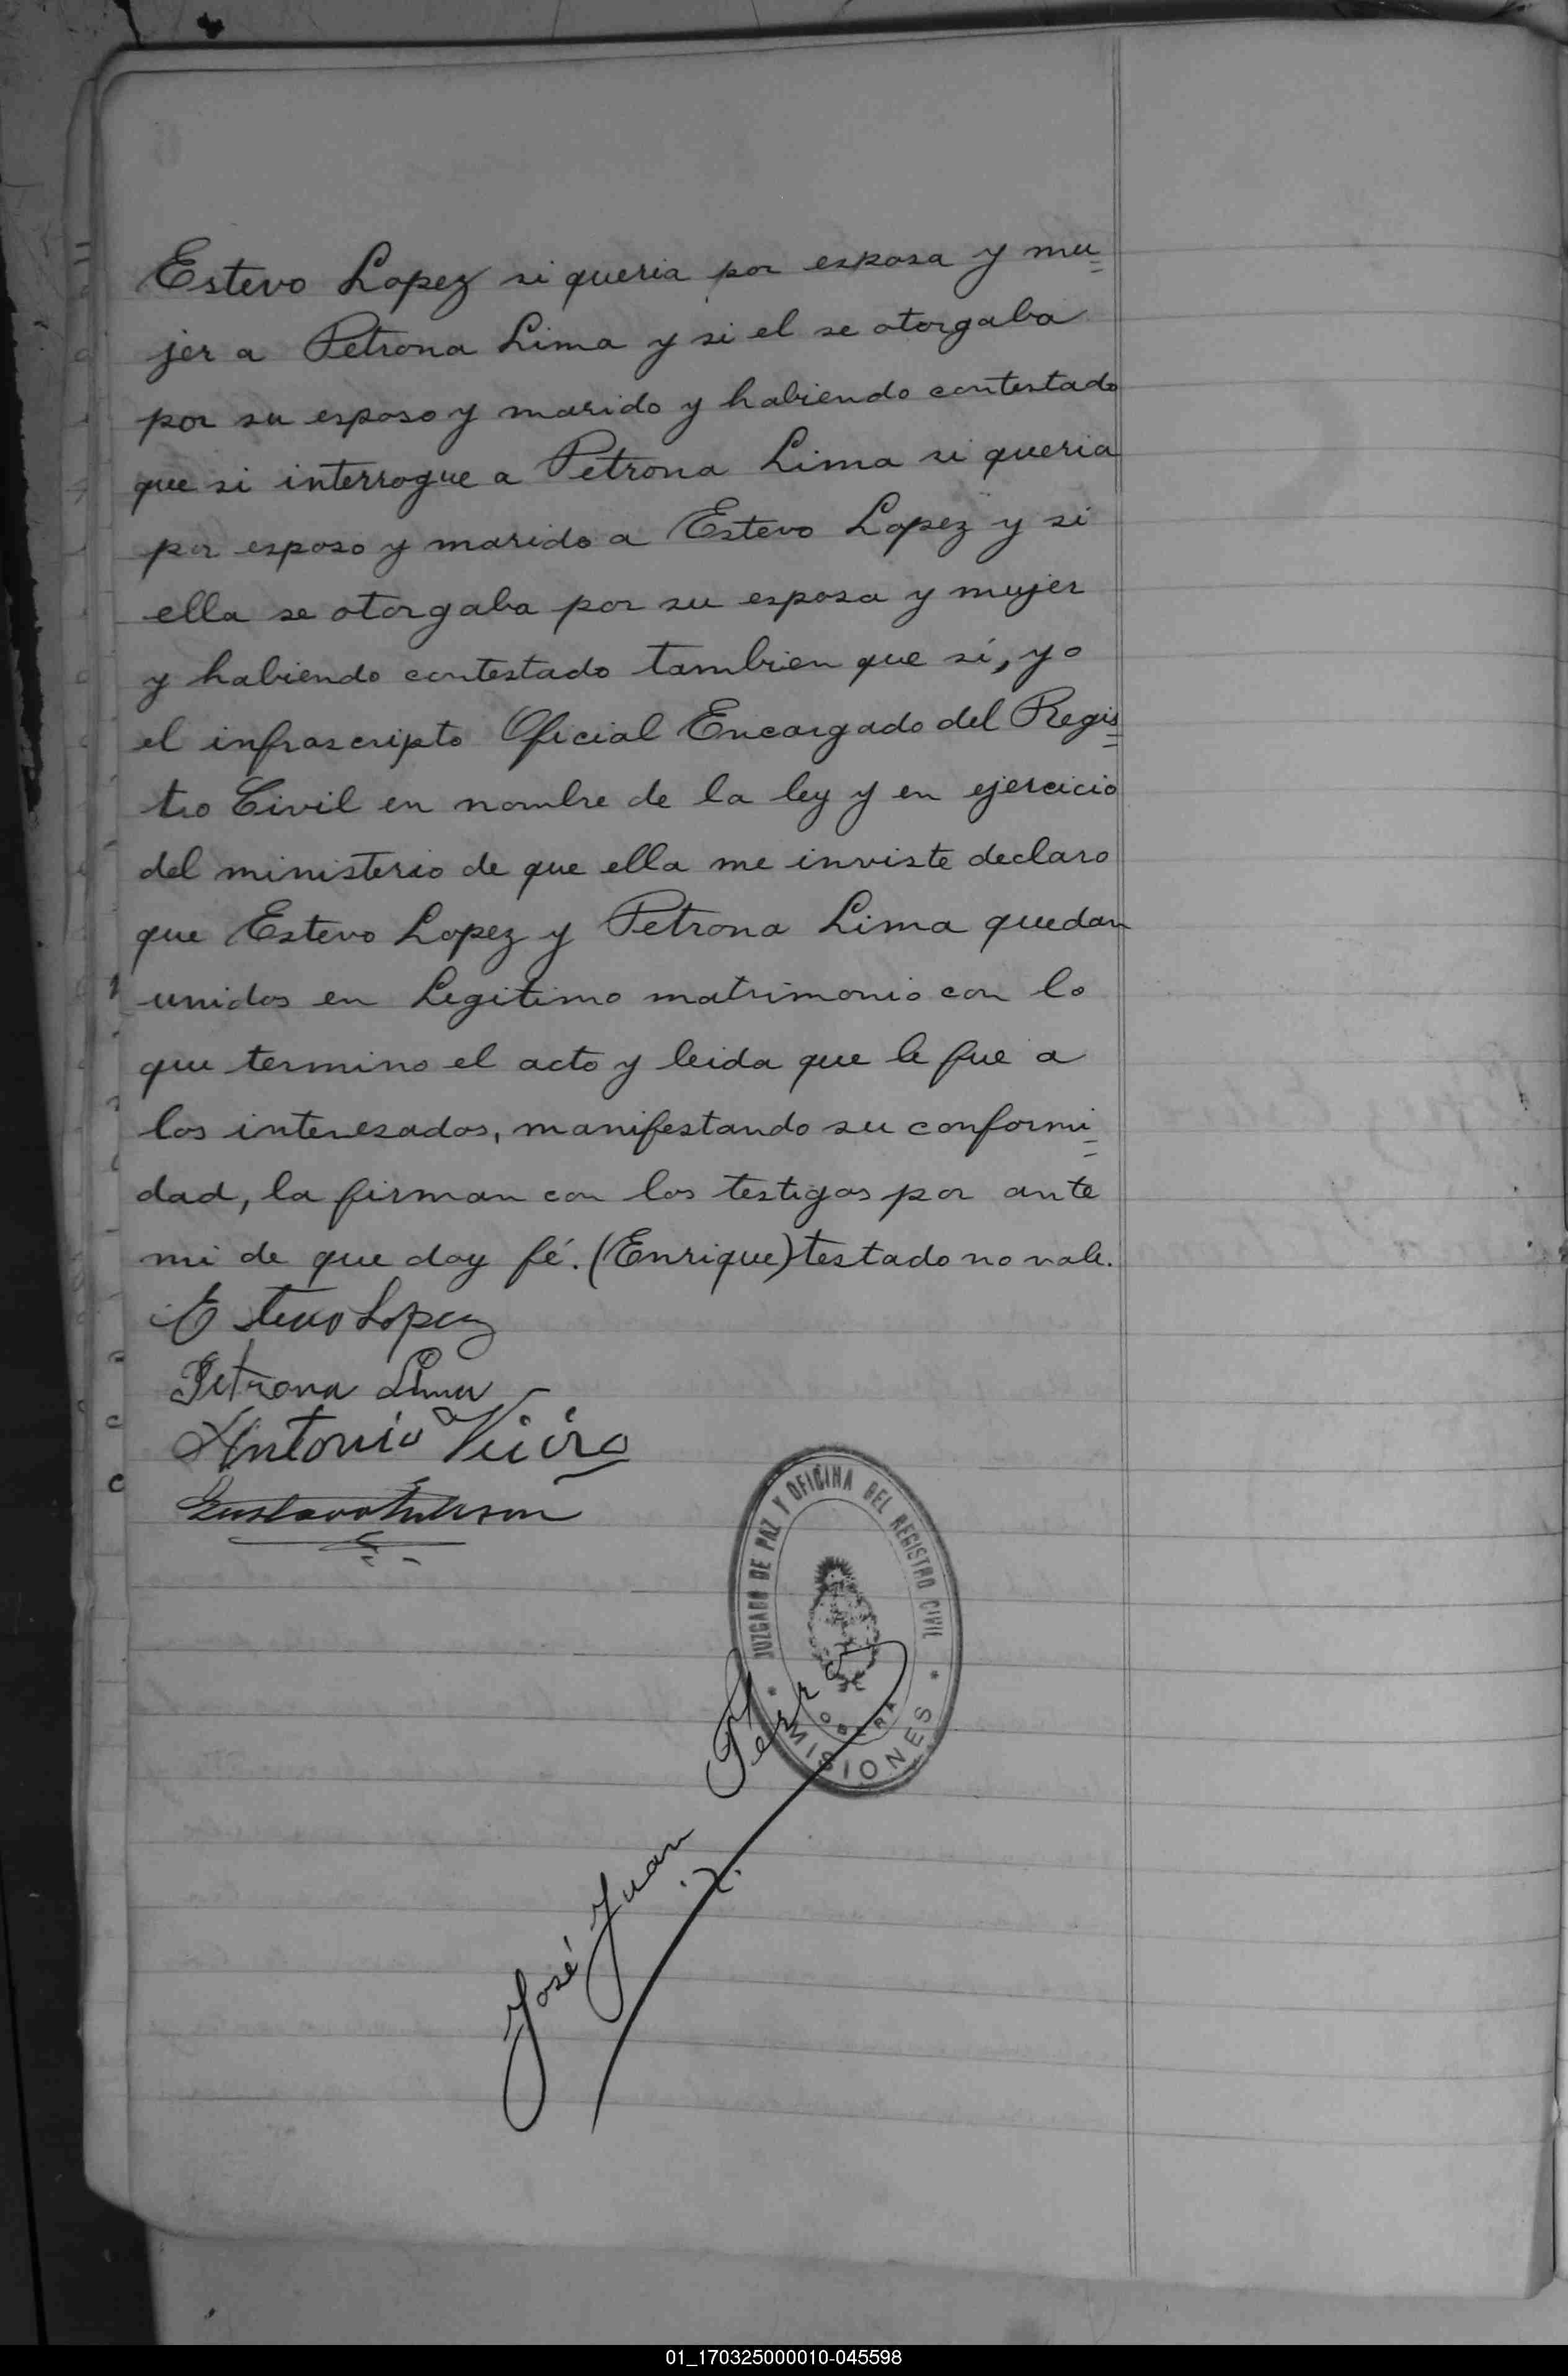 Estevo Lopez si queria por esposa y mu=
jer a Petrona Lima y si el se otorgaba
por su esposo y marido y habiendo contestado
que si interrogue a Petrona Lima si queria
por esposo y marido a Estevo Lopez y si
ella se otorgaba por su esposa y mujer
y habiendo contestado tambien que sí, yo
el infrascripto Oficial Encargado del Regis=
tro Civil en nombre de la ley y en ejercicio
del ministerio de que ella me inviste declaro
que Estevo Lopez y Petrona Lima quedan
unidos en Legitimo matrimonio con lo
que termino el acto y leida que le fue a
los interesados, manifestando su conformi=
dad, la firman con los testigos por ante
mi de que doy fé. (Enrique) testado no vale.
Estevo Lopez
Petrona Lima
Antonio Vieira
Gustavo
JUZGADO DE PAZ Y OFICINA DEL REGISTRO CIVIL
OBERA
* MISIONES *
José Juan
01_170325000010-045598